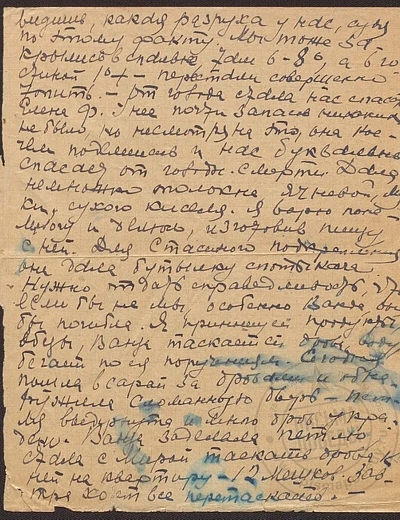 видишь, какая разруха у нас, судя
по этому факту. Мы тоже за-
крылись в спальне, там 6-8°, а в го-
стиной 1°+ — перестали совершенно
топить. — От голода стала нас спасать
Елена Ф. У нее почти запасов никаких
не было, но несмотря на это, она кое-
чем поделилась и нас буквально
спасает от голодн. смерти. Дала
немножко толокна, ячневой,
ки, сухого киселя. Я варю поне-
многу и делюсь, изготовив пищу
с ней. Для Стасиного подкрепления
она дала бутылку спотыкача
Нужно отдать справедливость,
если бы не мы, особенно Ванда, она
бы погибла. Я приношу продукты
обеды, Ванда таскает ей дрова, воду
бегает по ея поручениям.
пошла в сарай за дровами и обна-
ружила сломанную дверь —
ля ввернута и много дров укра-
дено. Ванда заделала петлю
стала с Мирой таскать дрова к
ней на квартиру — 12 мешков. Зав-
тра хотят все перетаскать. —